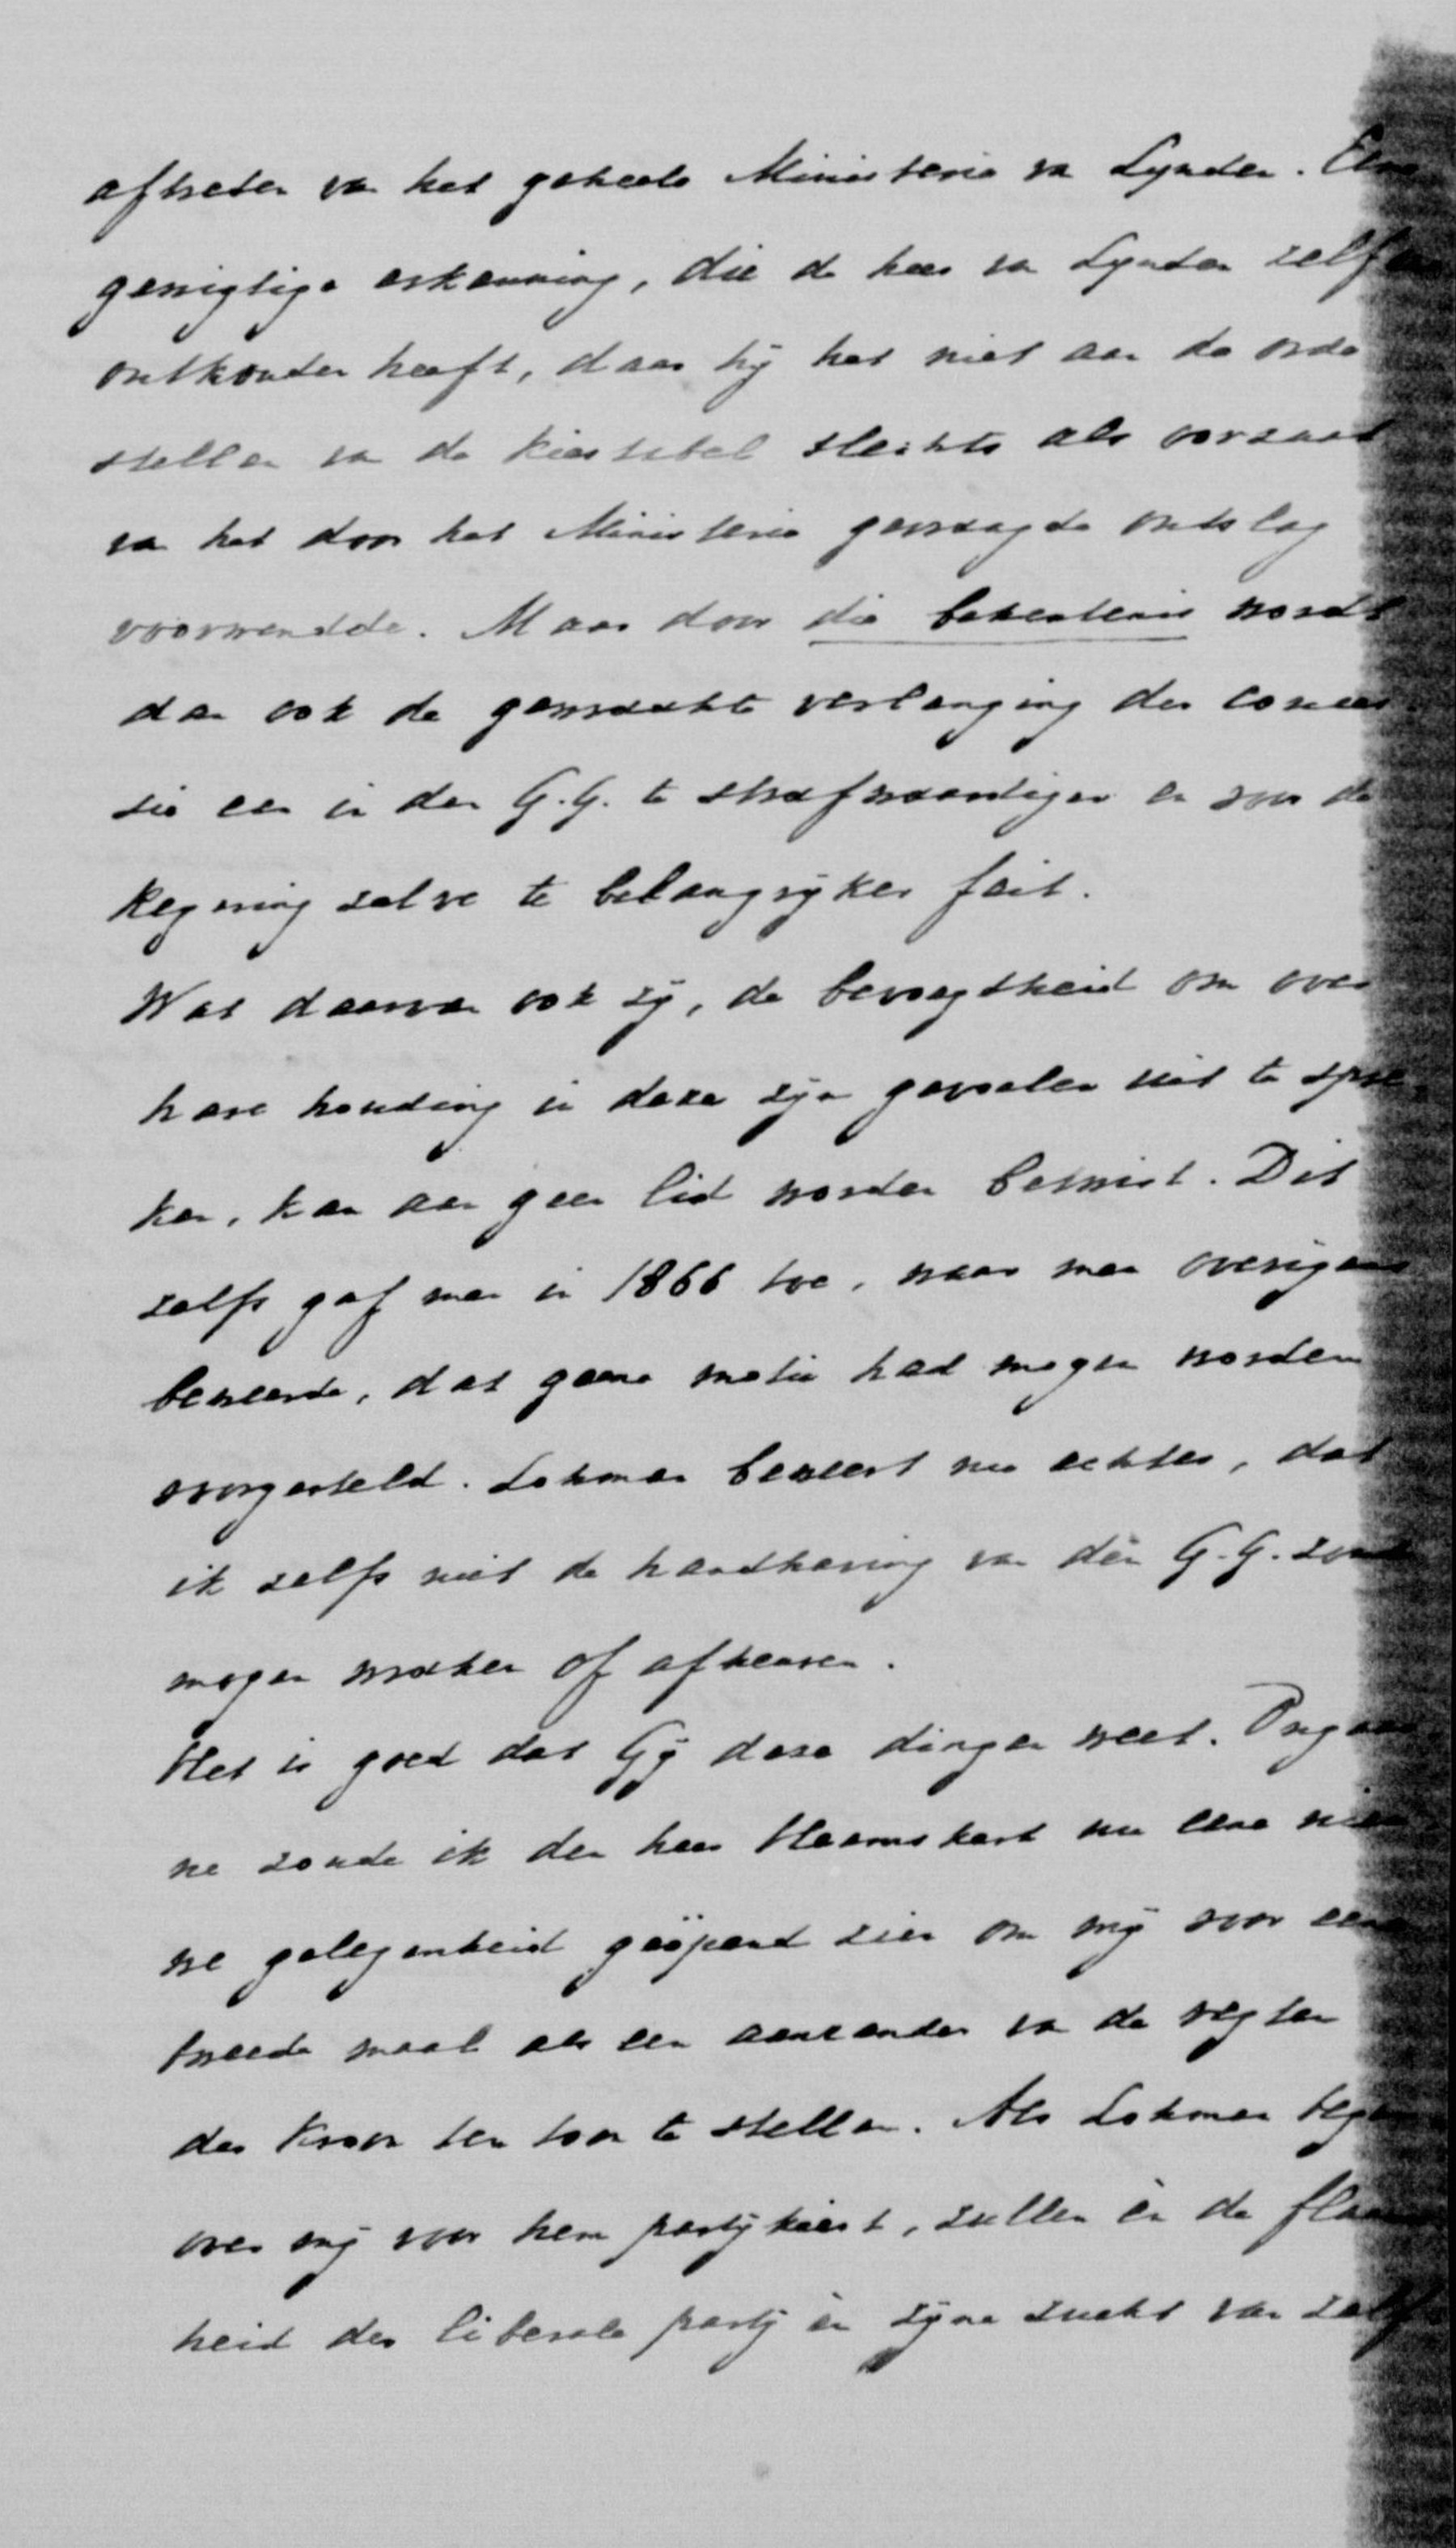 aftreden van het geheele Ministerie van Lynden. Eene
gewigtige erkenning, die de heer van Lynden zelf
ontkonden heeft, daar hij het niet aan de orde
stellen van de kiestabel slechts als oorzaak
van het door het Ministerie gevraagde ontslag
voorwendde. Maar door die bekentenis wordt
dan ook de gewraakte verlenging der conces
sie een in den G.G. te strafwaardiger en voor de
Regering zelve te belangrijker feit.
Wat daarvan ook zij, de bevoegdheid om over
hare houding in deze zijn gevoelen uit te spre
ken, kan aan geen lid worden betwist. Dit
zelfs gaf men in 1866 toe, waar men overigens
beweerde, dat geene motie had mogen worden
voorgesteld. Lohman beweert nu echter, dat
ik zelfs niet de handhaving van den G.G. zoude
mogen wraken of afkeuren.
Het is goed dat Gij deze dingen weet. Ongaar
ne zoude ik den heer Heemskerk nu eene nieu
we gelegenheid geöpend zien om mij voor eene
tweede maal als een aanrander van de regten
der Kroon ten toon te stellen. Als Lohman tegen
over mij voor hem partij kiest, zullen én de flaauw
heid der liberale partij én zijne zucht van zelf